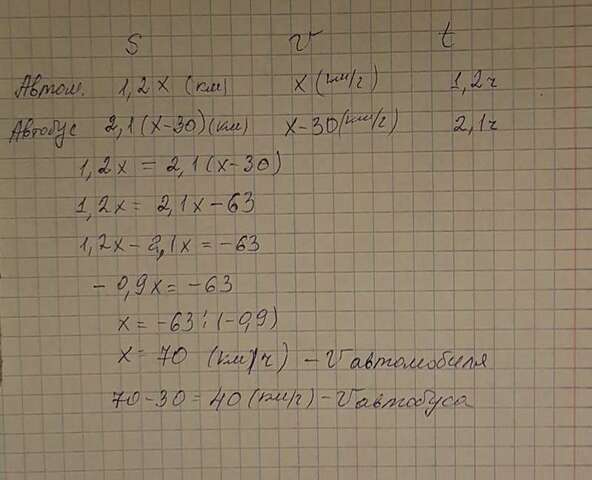 S V t
Автом. 1,2x (км) x (км/ч) 1,2ч
Автобус 2,1(x-30)(км) x-30(км/ч) 2,1ч
1,2x = 2,1(x-30)
1,2x = 2,1x-63
1,2x-2,1x = -63
-0,9x = -63
x = -63:(-0,9)
x = 70 (км/ч) - Vавтомобиля
70-30 = 40 (км/ч) - Vавтобуса